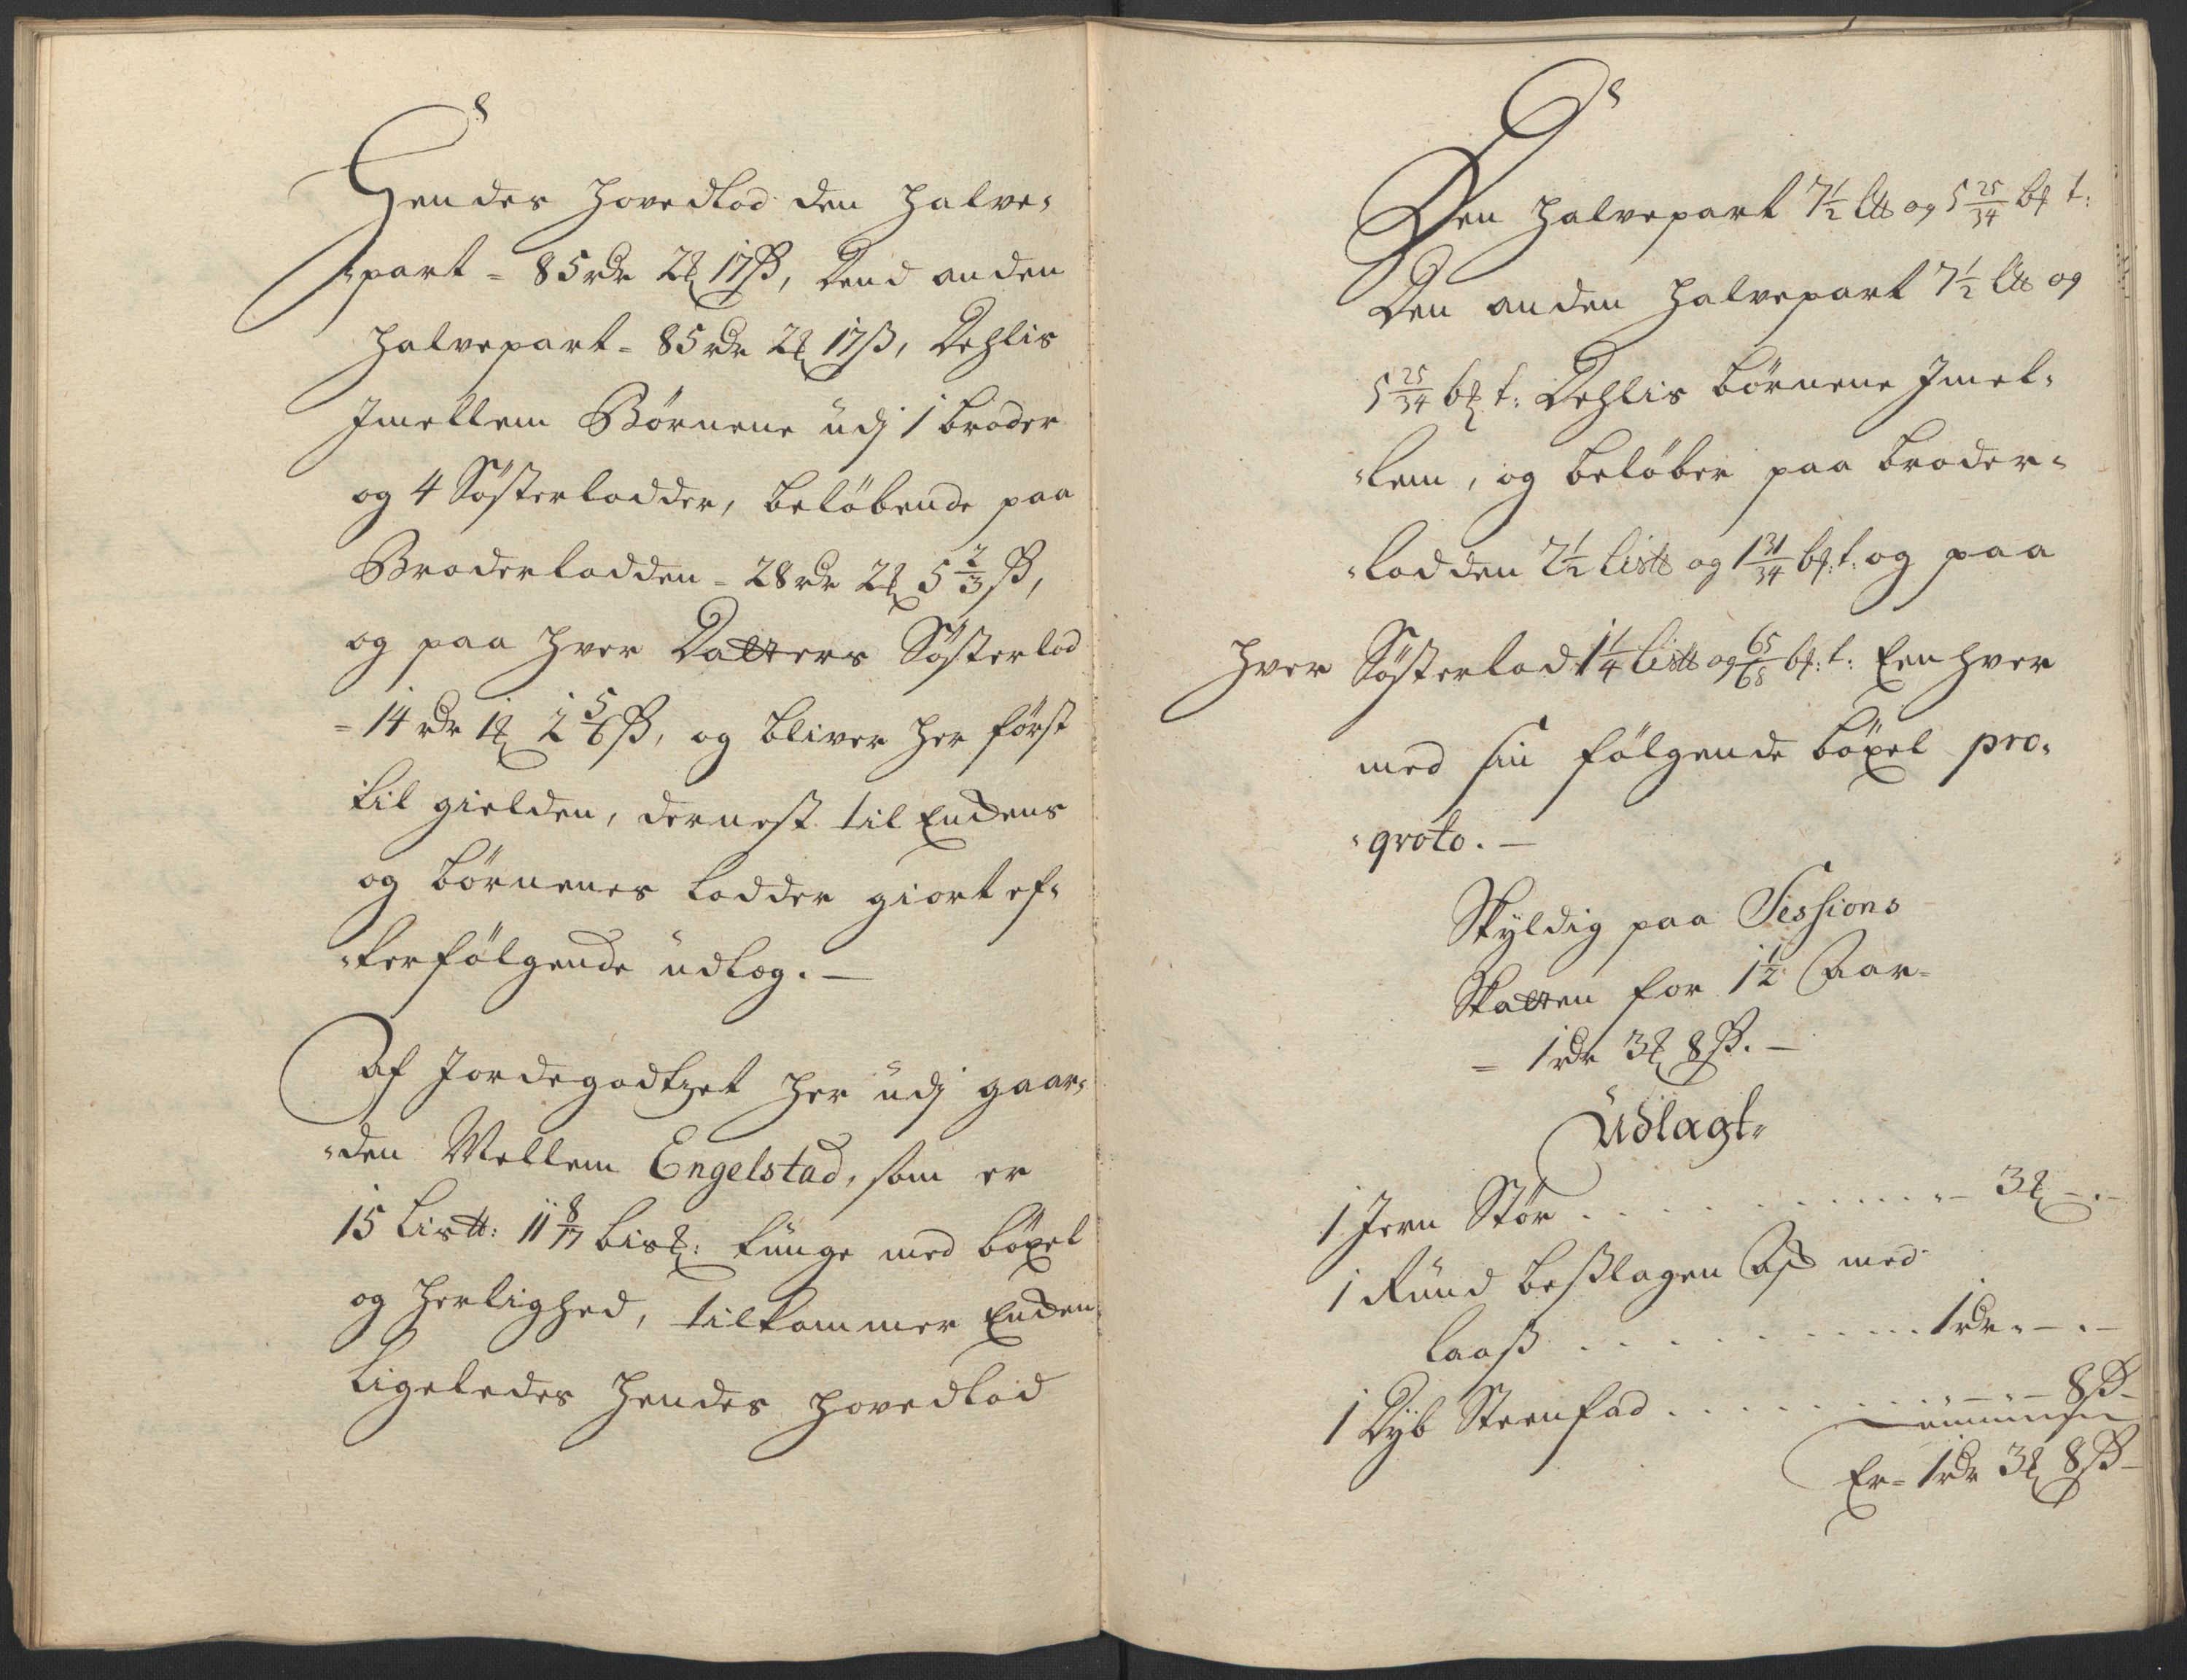 Hendes Hovedlod den halve,
,part = 85 rdr 2 ₰ 17 ß, Dend anden
halvepart = 85 rdr 2 ₰ 17 ß, Dehlis
Jmellem Børnene udj 1 broder
og 4 Søsterlodder, beløbende paa
Broderlodden = 28 rdr 2 ₰ 5 2/3 ß,
og paa hver Datters Søsterlod
= 14 rdr 1 ₰ 2 5/6 ß, og bliver her først
til gielden, dernest til Enckens
og børnenes lodder giort ef,
,terfølgende udlog. —
Af Jordegodtzet her udj gaar,
,den Mellem Engelstad, som er
15 Lis℔: 11 8/17 bis₰: tunge med bøxel
og herlighed, tilkommer Encken
Ligeledes hendes hovedlod
Den halvepart 7 1/2 L℔ og 5 25/34 b₰ t:
Den anden halvepart 7 1/2 L℔ og
5 25/34 b₰ t: Dehlis børnene Jmel,
,lem, og beløber paa broder,
,lodden 2 1/2 Lis℔ og 1 31/34 b₰: t: og paa
hver Søsterlod 1 1/4 Lis℔ og 65/68 b₰: t: Een hver
med sin følgende bøxel pro,
,qvoto. —
Skyldig paa Sessions
Skatten for 1 1/2 Aar
= 1 rdr 3 ₰ 8 ß. —
Udlagt,
1 Jern Stør . . . . . . . . . . . . — 3 ₰ — . —
1 Rund beslagen Ask med
laaß . . . . . . . . . . . 1 rdr . — . —
1 Dyb Steenfad . . . . . . . . — . — 8 ß
Er = 1 rdr 3 ₰ 8 ß